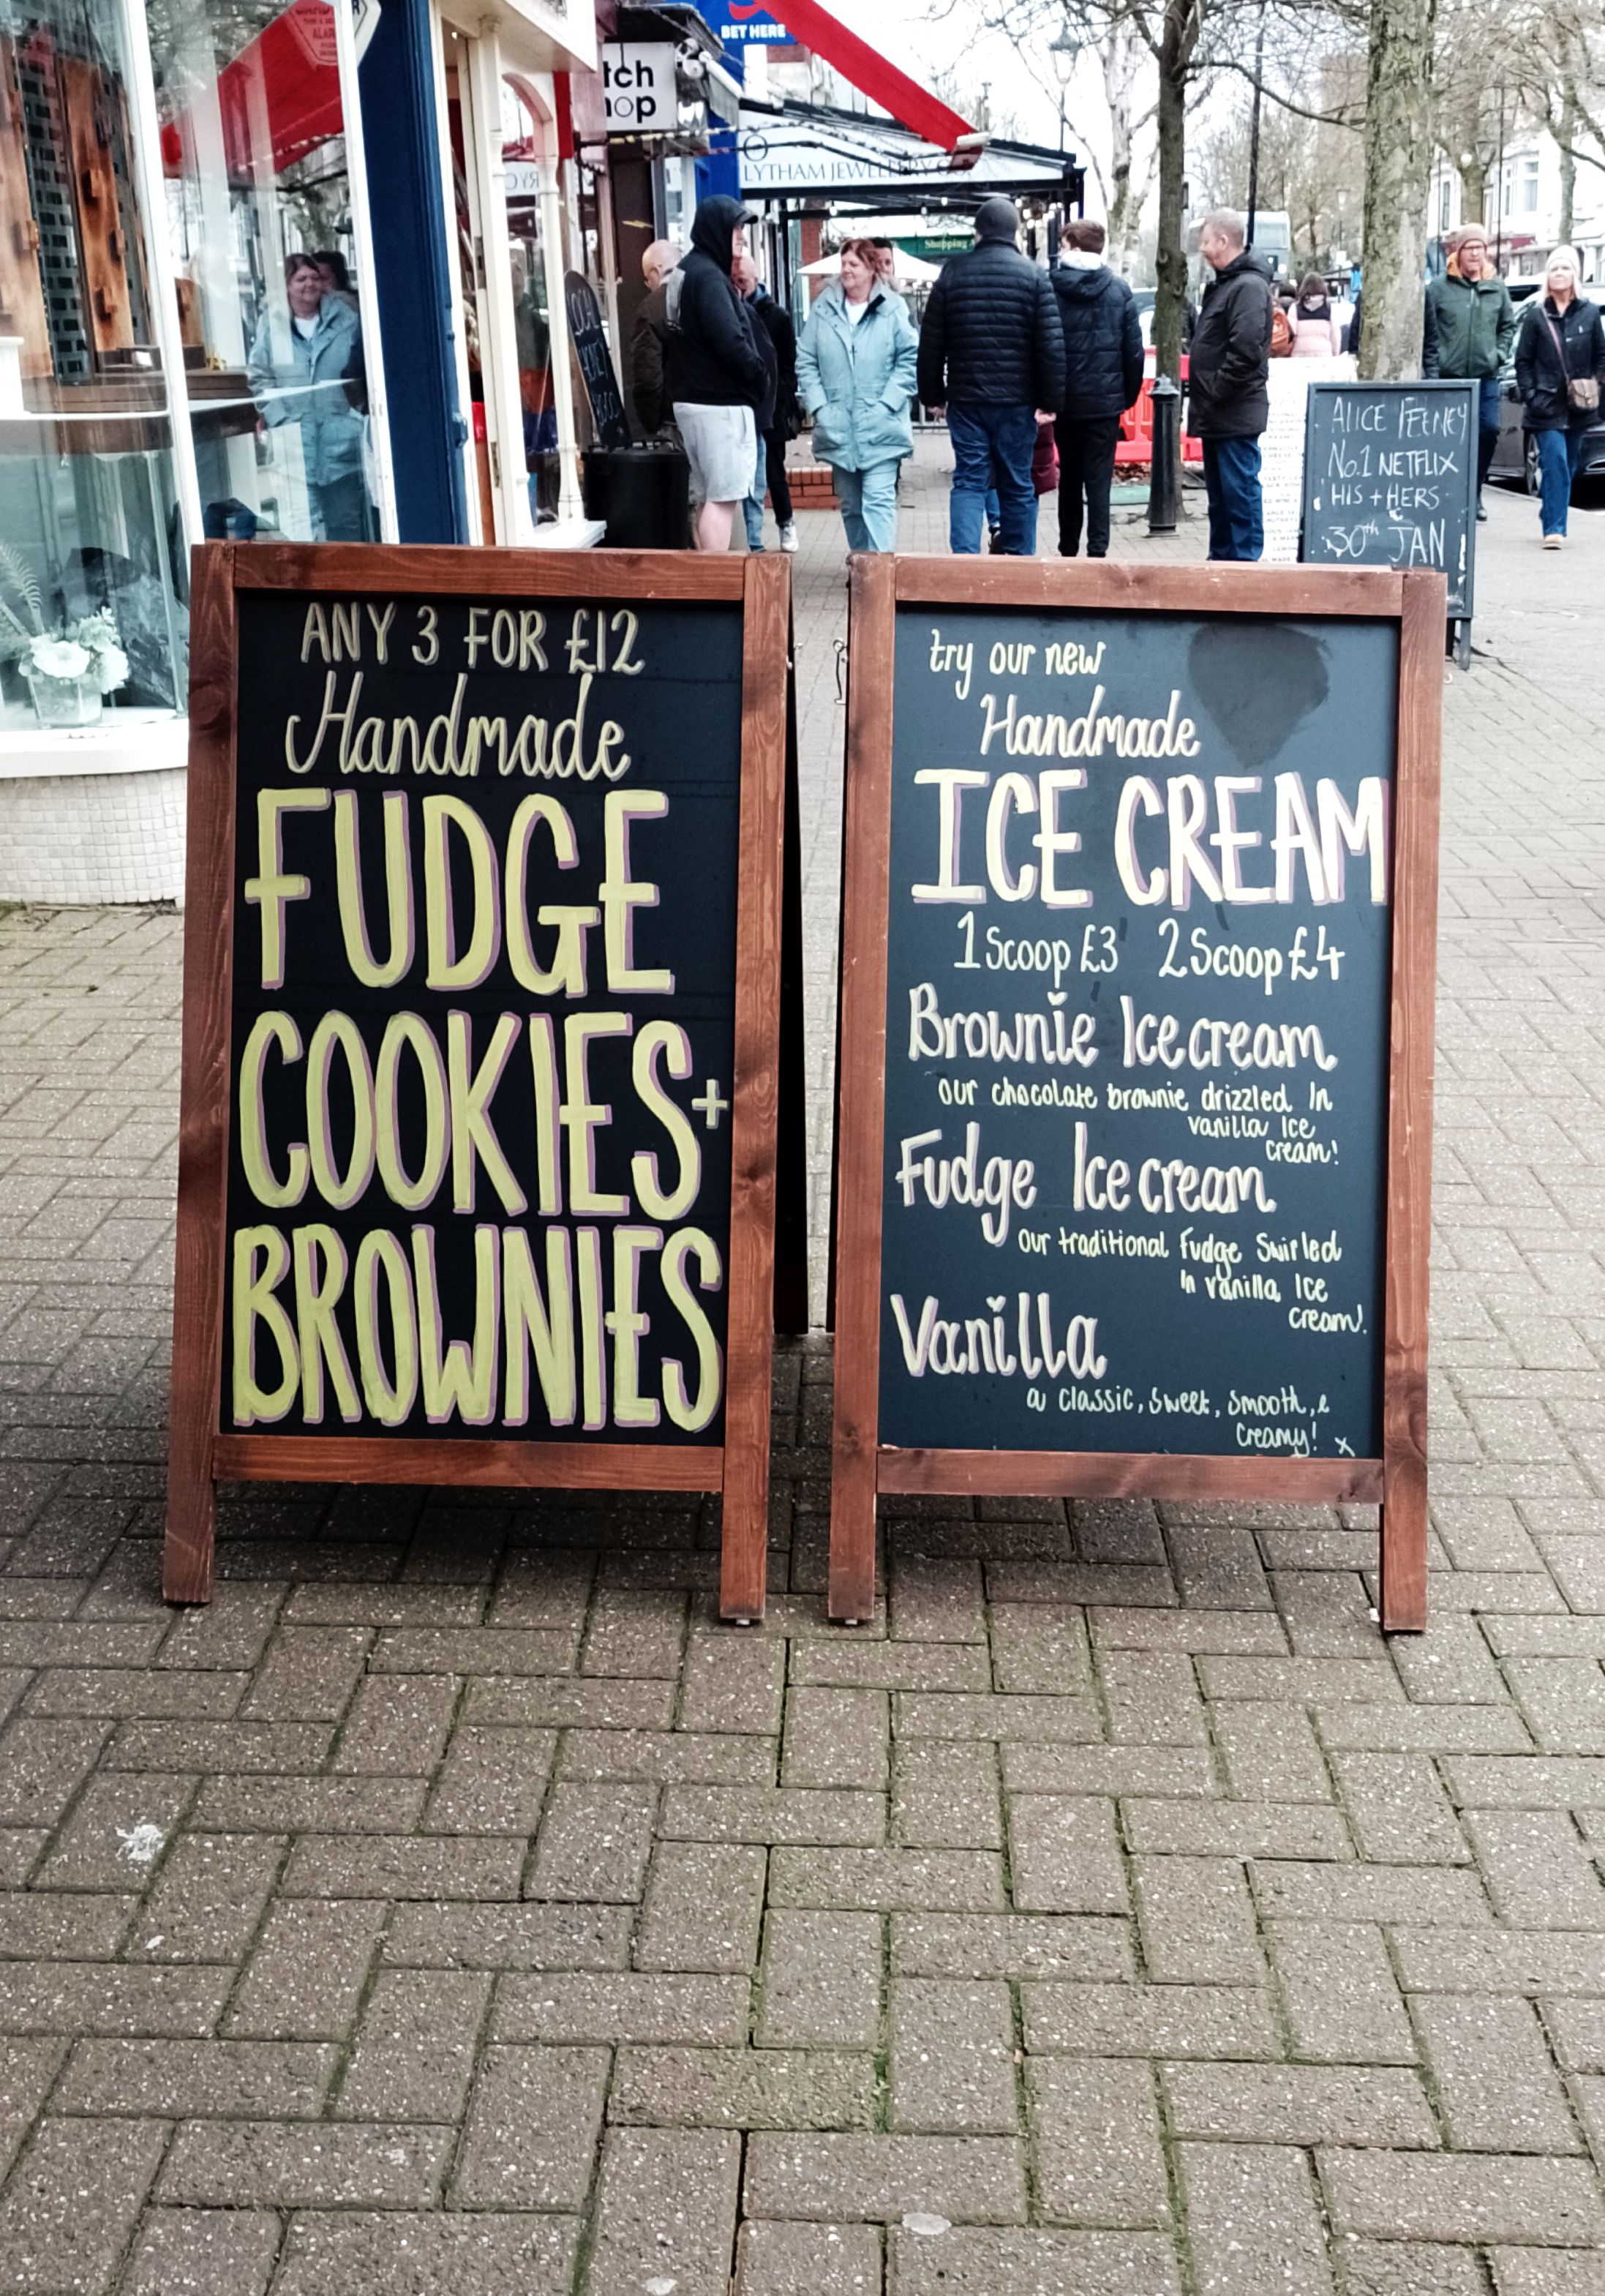 BET HERE
tch
hop
LYTHAM JEWELLERY
Shopping
ALICE FEENEY
No.1 NETFLIX
HIS + HERS
30th JAN
ANY 3 FOR £12
Handmade
FUDGE
COOKIES+
BROWNIES
try our new
Handmade
ICE CREAM
1 Scoop £3 2 Scoop £4
Brownie Ice cream
our chocolate brownie drizzled In
vanilla Ice
cream!
Fudge Ice cream
our traditional Fudge Swirled
In vanilla Ice
cream!
Vanilla
a classic, sweet, smooth, &
creamy! x